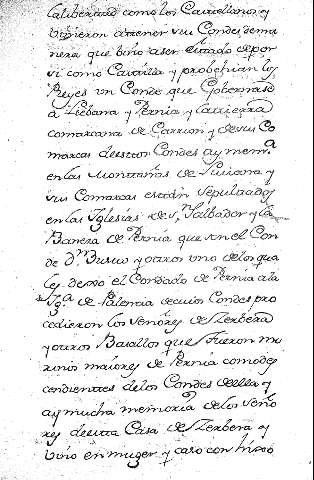 la libertad como los Castellanos y
vivieron a tener sus Condes de ma
nera que vino a ser estado de por
si como Castilla y probehian los
Reyes un Conde que Gobernaba
a Liebana y Pernia y la tierra
comarcana de Carrion y de sus Co
marcas de estos Condes ay mem.a
en las Montañas de y
sus Comarcas están sepultados
en las Iglesias de S. Salbador y la
de Pernia que son el Con
de D.n Bueso y otros uno de los qua
les dexo el Condado de Pernia a la
Yg.a de Palencia de cuios Condes pro
cedieron los señores de Zerbera
y otros Basallos que fueron me
rinos maiores de Pernia como des
cendientes de los Condes de ella y
ay mucha memoria de los Seño
res de esta Casa de Zerbera y
vivio en muger y caso con hixo